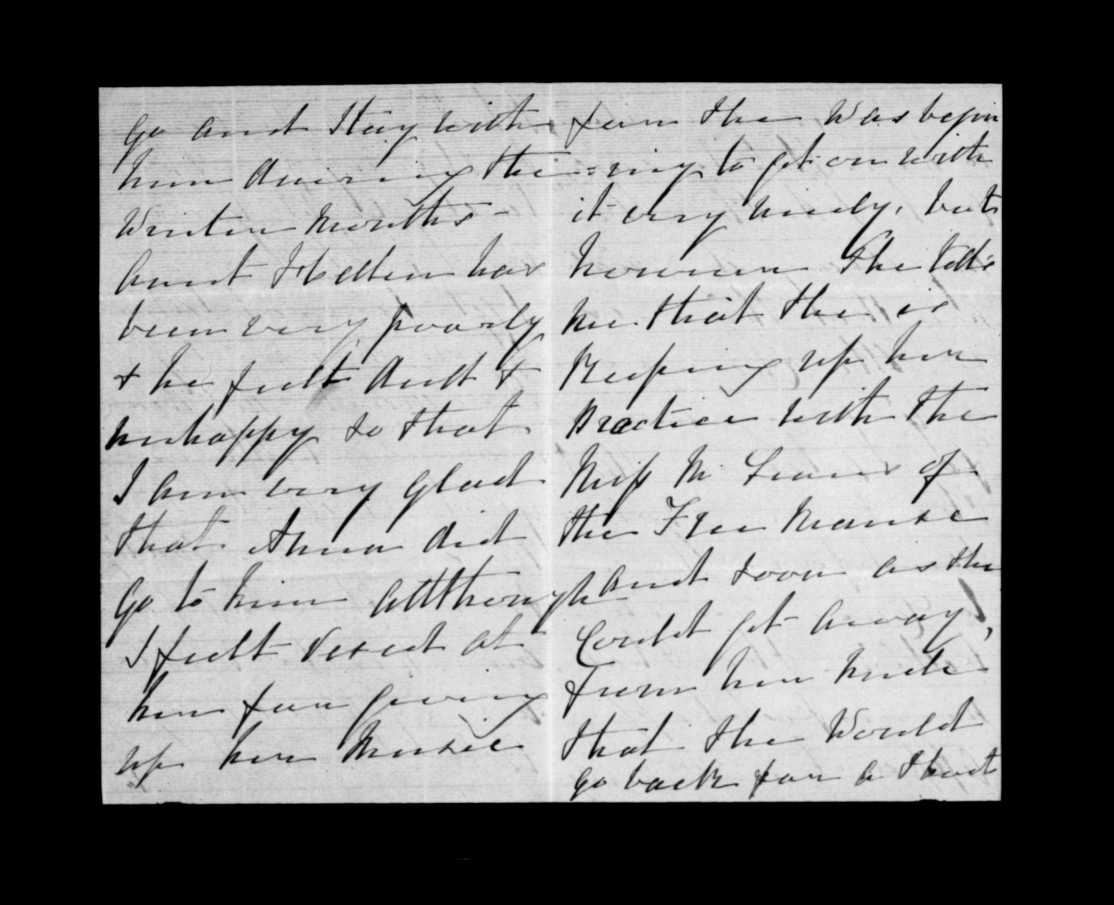 go and stay with
him during the
Winter Months -
Aunt Hellen has
been very poorly
& he felt dull &
unhappy so that
I am very glad
that Anna did
go to him allthough
I felt vexed at
her for giving
up her Music
for she was begin
=ning to get on with
it very nicely, but
however she tells
me that she is
Keeping up her
practice with the
Miss Mc of
the Free Manse
and soon as she
Could get away,
from her Uncle
that she Would
go back for a short